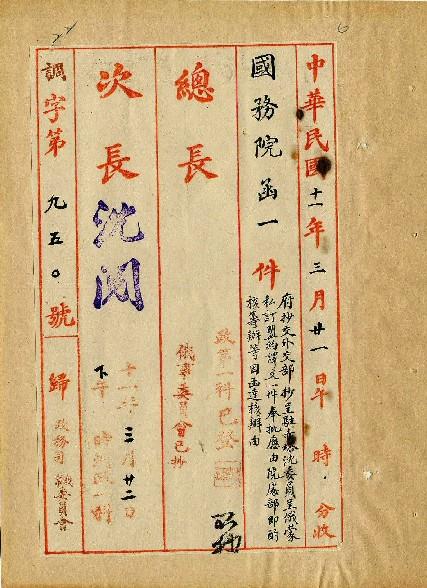 中華民國十一年三月廿一日午 時 分收
國務院函一件
府抄交外交部抄呈駐 塔沈委員呈俄蒙
私訂盟約譯文一件奉批應由院處部即酌
核籌辦等因函達核辦由
總長
政第一科已登
俄事委員會已抄
次長
沈閱
十一年三月廿二日
下午 時
調字第九五〇號
歸
政務司
俄委員會